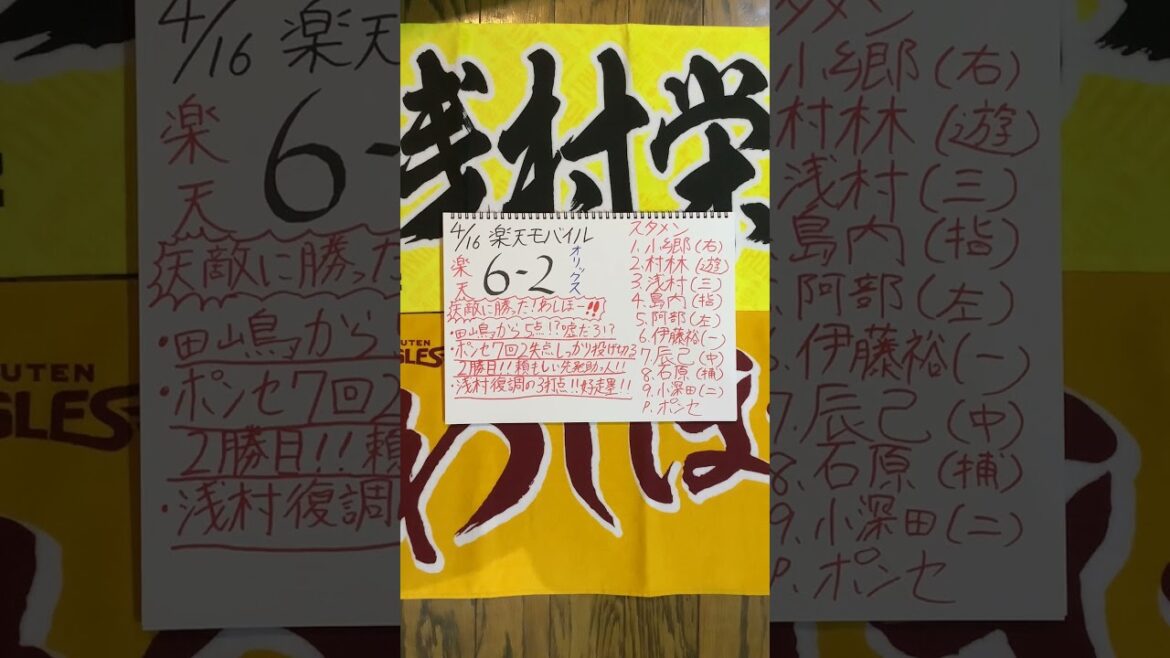 浅村栄
4/16 楽天モバイル
楽天 6-2 オリックス
天敵に勝った!わしほー!!
・田嶋から5点!?嘘だろ!?
・ポンセ7回2失点しっかり投げ切る
2勝目!!頼もしい先発助っ人!!
・浅村復調の3打点!!好走塁!!
スタメン
1.小郷(右)
2.村林(遊)
3.浅村(三)
4.島内(指)
5.阿部(左)
6.伊藤裕(一)
7.辰己(中)
8.石原(捕)
9.小深田(二)
P.ポンセ
わしほ